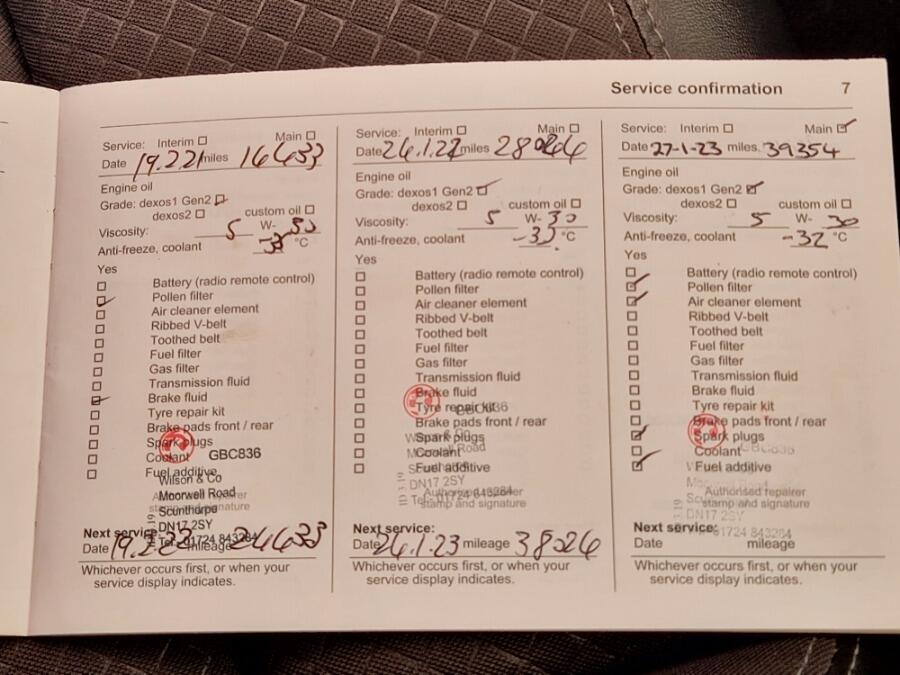 Service confirmation 7
Service: Interim ☐ Main ☐
Date 19.2.21 miles 16433
Engine oil
Grade: dexos1 Gen2 ☑
dexos2 ☐ custom oil ☐
Viscosity: 5 W- 30
Anti-freeze, coolant -33 °C
Yes
☐ Battery (radio remote control)
☑ Pollen filter
☐ Air cleaner element
☐ Ribbed V-belt
☐ Toothed belt
☐ Fuel filter
☐ Gas filter
☐ Transmission fluid
☑ Brake fluid
☐ Tyre repair kit
☐ Brake pads front / rear
☐ Spark plugs
☐ Coolant
GBC836
☐ Fuel additive
Wilson & Co
Moorwell Road
Scunthorpe
DN17 2SY
Tel: 01724 843284
Authorised repairer
stamp and signature
Next service:
Date 19.2.22 mileage 26433
Whichever occurs first, or when your
service display indicates.
Service: Interim ☐ Main ☐
Date 26.1.22 miles 28026
Engine oil
Grade: dexos1 Gen2 ☑
dexos2 ☐ custom oil ☐
Viscosity: 5 W- 30
Anti-freeze, coolant -33 °C
Yes
☐ Battery (radio remote control)
☐ Pollen filter
☐ Air cleaner element
☐ Ribbed V-belt
☐ Toothed belt
☐ Fuel filter
☐ Gas filter
☐ Transmission fluid
☐ Brake fluid
☐ Tyre repair kit
GBC836
☐ Brake pads front / rear
☐ Spark plugs
☐ Coolant
☐ Fuel additive
DN17 2SY
Tel: 01724 843284
Authorised repairer
stamp and signature
Next service:
Date 26.1.23 mileage 38026
Whichever occurs first, or when your
service display indicates.
Service: Interim ☐ Main ☑
Date 27-1-23 miles. 39354
Engine oil
Grade: dexos1 Gen2 ☑
dexos2 ☐ custom oil ☐
Viscosity: 5 W- 30
Anti-freeze, coolant -32 °C
Yes
☑ Battery (radio remote control)
☑ Pollen filter
☐ Air cleaner element
☐ Ribbed V-belt
☐ Toothed belt
☐ Fuel filter
☐ Gas filter
☐ Transmission fluid
☐ Brake fluid
☐ Tyre repair kit
☐ Brake pads front / rear
☑ Spark plugs
☐ Coolant
GBC836
☑ Fuel additive
Authorised repairer
stamp and signature
DN17 2SY
01724 843284
Next service:
Date mileage
Whichever occurs first, or when your
service display indicates.